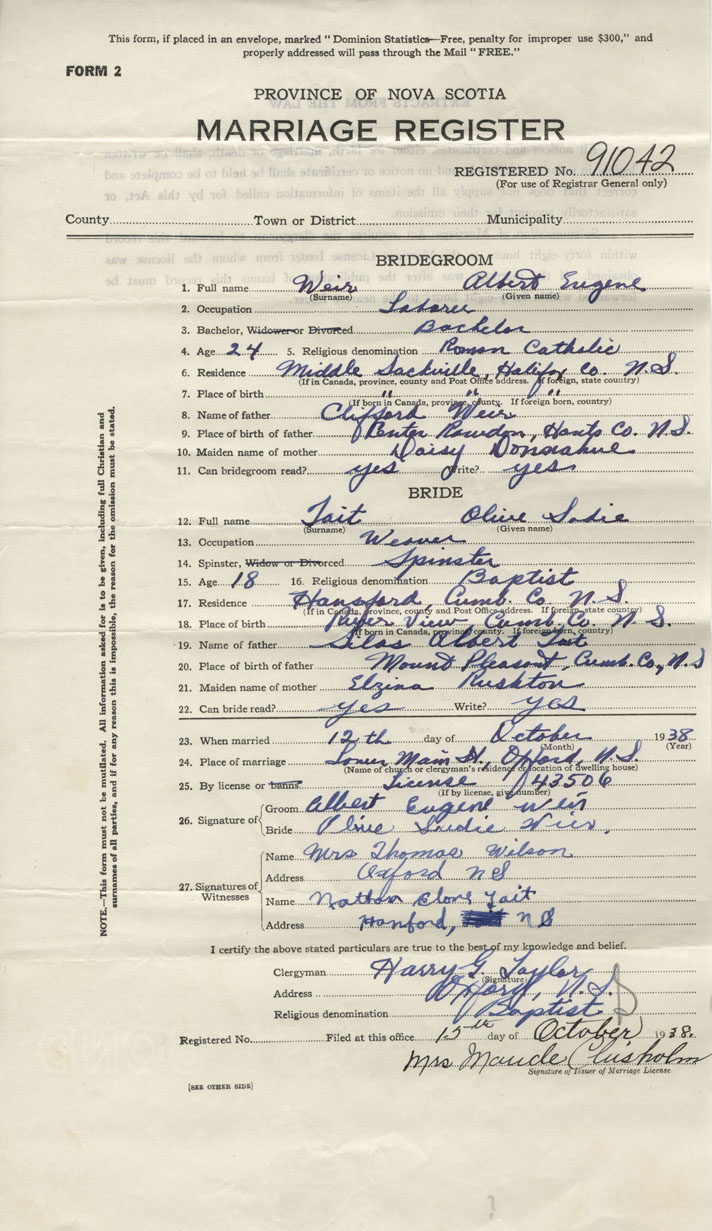 This form, if placed in an envelope, marked "Dominion Statistics—Free, penalty for improper use $300," and
properly addressed will pass through the Mail "FREE."
FORM 2
PROVINCE OF NOVA SCOTIA
MARRIAGE REGISTER
REGISTERED No. 91042
(For use of Registrar General only)
County Town or District Municipality
BRIDEGROOM
1. Full name Weir Albert Eugene
(Surname) (Given name)
2. Occupation Laborer
3. Bachelor, Widower or Divorced Bachelor
4. Age 24 5. Religious denomination Roman Catholic
6. Residence Middle Sackville, Halifax Co. N.S.
(If in Canada, province, county and Post Office address. If foreign, state country)
7. Place of birth " " "
(If born in Canada, province, county. If foreign born, country)
8. Name of father Clifford Weir
9. Place of birth of father Center Rawdon, Hants Co. N.S.
10. Maiden name of mother Daisy Donoahue
11. Can bridegroom read? yes Write? yes
BRIDE
12. Full name Tait Olive Sadie
(Surname) (Given name)
13. Occupation Weaver
14. Spinster, Widow or Divorced Spinster
15. Age 18 16. Religious denomination Baptist
17. Residence Hansford, Cumb. Co. N.S.
(If in Canada, province, county and Post Office address. If foreign, state country)
18. Place of birth River View, Cumb. Co. N.S.
(If born in Canada, province, county. If foreign born, country)
19. Name of father Silas Albert Tait
20. Place of birth of father Mount Pleasant, Cumb. Co., N.S
21. Maiden name of mother Elzina Rushton
22. Can bride read? yes Write? yes
23. When married 12th day of October 1938
(Month) (Year)
24. Place of marriage Lower Main St., Oxford, N.S.
(Name of church or clergyman's residence or location of dwelling house)
25. By license or banns License 43506
(If by license, give number)
26. Signature of Groom Albert Eugene Weir
Bride Olive Sadie Weir,
27. Signatures of Witnesses Name Mrs Thomas Wilson
Address Oxford NS
Name Nathan Tait
Address Hanford, NS
I certify the above stated particulars are true to the best of my knowledge and belief.
Clergyman Harry G. Taylor
(Signature)
Address Oxford, N.S.
Religious denomination Baptist
Registered No. Filed at this office 15th day of October 1938.
Mrs Maude Chisholm
Signature of Issuer of Marriage License.
[SEE OTHER SIDE]
NOTE.—This form must not be mutilated. All information asked for is to be given, including full Christian and
surnames of all parties, and if for any reason this is impossible, the reason for the omission must be stated.